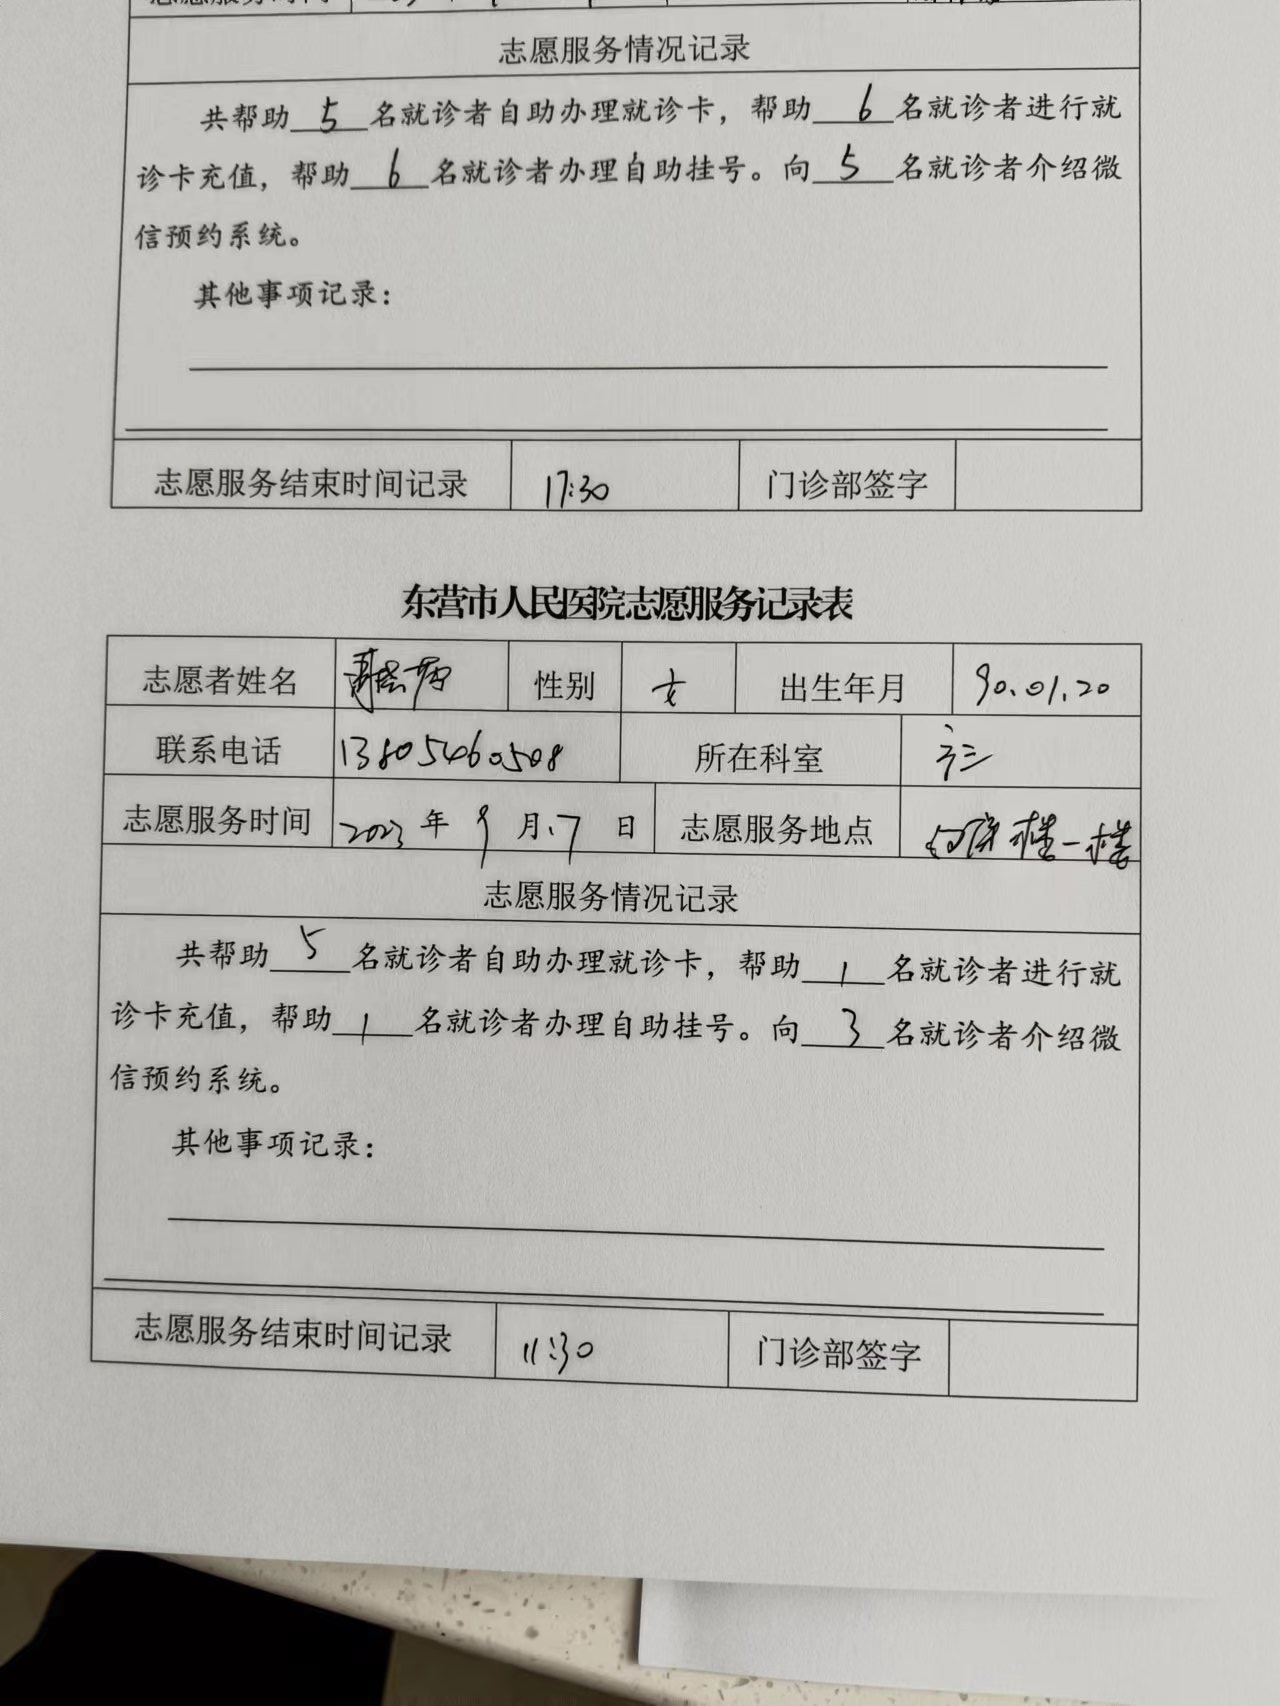 志愿服务情况记录
共帮助 5 名就诊者自助办理就诊卡，帮助 6 名就诊者进行就
诊卡充值，帮助 6 名就诊者办理自助挂号。向 5 名就诊者介绍微
信预约系统。
其他事项记录：
志愿服务结束时间记录 17:30 门诊部签字
东营市人民医院志愿服务记录表
志愿者姓名 性别 女 出生年月 90.01.20
联系电话 13805460508 所在科室
志愿服务时间 2023 年 9 月 17 日 志愿服务地点 楼一楼
志愿服务情况记录
共帮助 5 名就诊者自助办理就诊卡，帮助 1 名就诊者进行就
诊卡充值，帮助 1 名就诊者办理自助挂号。向 3 名就诊者介绍微
信预约系统。
其他事项记录：
志愿服务结束时间记录 11:30 门诊部签字